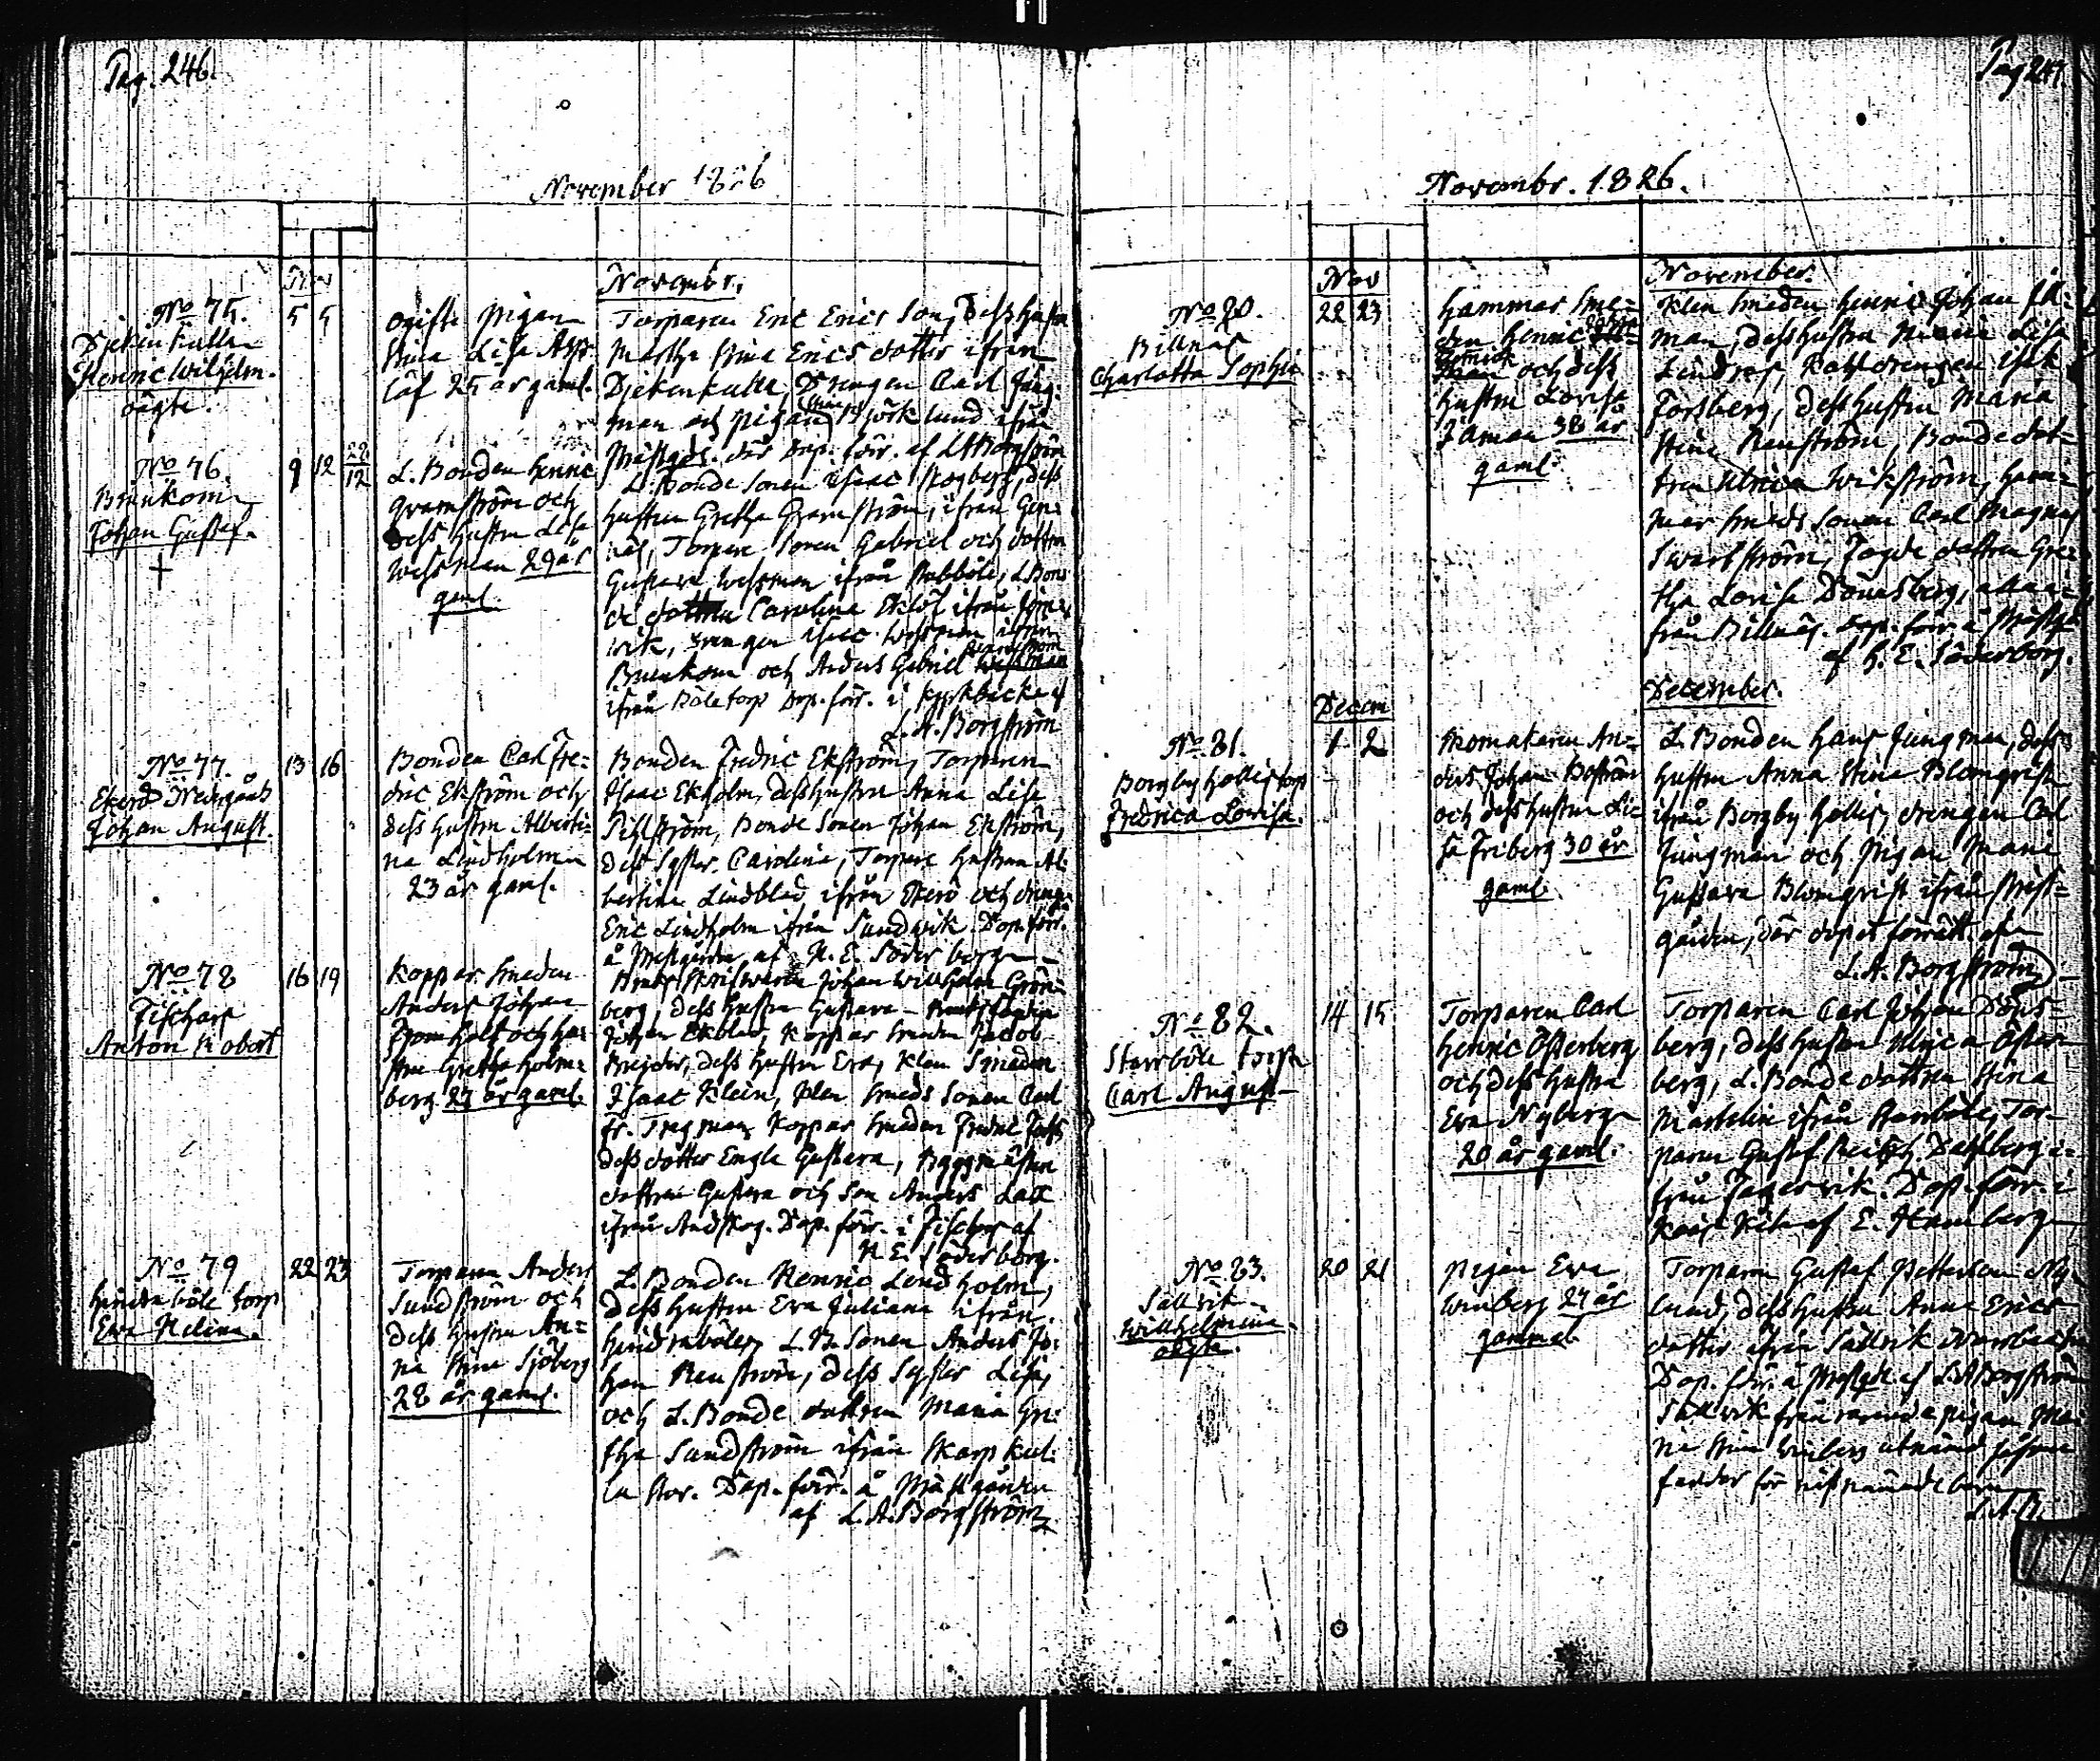 Pag. 246.
November 1826
Nov
Novembr.
No 75.
Djekinkulla
Henric Wilhelm.
oägte.
5 5
ogifte pigan
Stina Lisa Asp-
löf 25 år gaml.
Torparen Eric Erics Son, dess hustru
Martha Stina Ericsdotter ifrån
Djekinkulla, Drengen Carl Jung-
man och pigan Stina Björklund ifrån
Prästgdn. där Dop. förr. af L A Borgström
No 76.
Brinkom
Johan Gustaf.
+
9 12 22/12
L. Bonden Henric
Granström och
dess hustru Lisa
Wessman 29 år
gaml.
L. Bonde Sonen Isaac Skogberg, dess
hustru Gretha Granström, ifrån
Torpare Sonen Gabriel och dottren
Gustava Wessman ifrån Stabböle, L. Bon-
de dottren Carolina Eklöf ifrån
wik, drengen Isaac Wessman ifrån
Brinkom och Anders Gabriel
ifrån Böletorp Dop. förr. i
L. A. Borgström
No 77.
Ekerö Nedergård
Johan August.
13 16
Bonden Carl Fre-
dric Ekström och
dess hustru Alberti-
na Lindholm
23 år gaml.
Bonden Fredric Ekström, Torparen
Isaac Ekholm, dess hustru Anna Lisa
Sihlström, Bonde Sonen Johan Ekström,
dess Syster Carolina, Torpare hustrun Al-
bertina Lindblad ifrån Ekerö och dreng.
Eric Lindholm ifrån Sundwik. Dop. förr.
å Prestgården af N. E. Söderborg
No 78
Fischars
Anton Robert
16 19
Koppar Smeden
Anders Johan
och hu-
stru Gretha Holm-
berg 27 år gaml.
Johan Willhelm Grön-
berg, dess hustru Gustava
Johan Ekblad, Koppar Smeden Jacob
dess hustru Eva, Klen Smeden
Isaac Klein, Klen Smeds Sonen Carl
Fr. Koppar Smeden Fredric
dess dotter Engla Gustava, Byggmästare
dottren Gustava och Son Anders
ifrån Andskog. Dop. förr. i Fischars af
N. E. Söderborg.
No 79
Hindraböle torp
Eva Helena.
22 23
Torparen Anders
Sundström och
dess hustru An-
na Stina Sjöberg
28 år gaml.
L. Bonden Henric Lindholm,
dess hustru Eva Juliana ifrån
Hindraböle, L. B. Sonen Anders Jo-
han Renström, dess Syster Lisa,
och L. Bonde dottren Maria Gre-
tha Sundström ifrån Skarpkul-
la Stor. Dop. förr. å Prästgården
af L. A. Borgström
Pag 247.
Novembr. 1826.
Nov
November.
No 80.
Billnäs
Charlotta Sophia
22 23
Hammar Sme-
den Henric
och dess
hustru Lovisa
38 år
gaml.
Klen Smeden Henric Johan
man, dess hustru Maria Lisa
Lindros, Kohldrengen Isak
Forsberg, dess hustru Maria
Stina Renström, Bonde dot-
tren Ulrica Wikström, Ham-
mar Smeds Sonen Carl Magnus
Swartström, dottren Gre-
tha Lovisa Dönsberg, alla i-
från Billnäs. Dop. förr. å Prästgd
af N. E. Söderborg.
Decem
December.
No 81.
Borgby Hollis torp
Fredrica Lovisa.
1 2
Skomakaren An-
ders Johan Boström
och dess hustru Li-
sa Friberg 30 år
gaml.
L. Bonden Hans Jungman, dess
hustru Anna Stina Blomqvist
ifrån Borgby Hollis, drengen Carl
Jungman och Pigan Maria
Gustava Blomqvist ifrån Präst-
gården, där dopet förrätt. af
L. A. Borgström
No 82.
Starrböle torp
Carl August
14 15
Torparen Carl
Henric Österberg
och dess hustru
Eva Nyberg
20 år gaml.
Torparen Carl Johan Döns-
berg, dess hustru Ulrica Öster-
berg, L. Bonde dottren Stina
Martelin ifrån Starrböle, Tor-
paren Gustaf Dahlberg i-
från Fagervik. Dop. förr. i
af E. Hamberg
No 83.
Sällvik
Willhelmina.
oägta.
20 21
Pigan Eva
Winberg 27 år
gammal
Torparen Gustaf Pettersson Ny-
lund, dess hustru Anna Erics
dotter ifrån Sällvik
Dop. förr. å Prestgdn. af L. A Borgström
Sällvik från varande pigan Ma-
ria Stina Winberg utnämd
fadder för nästnämde barn
L. A. B.